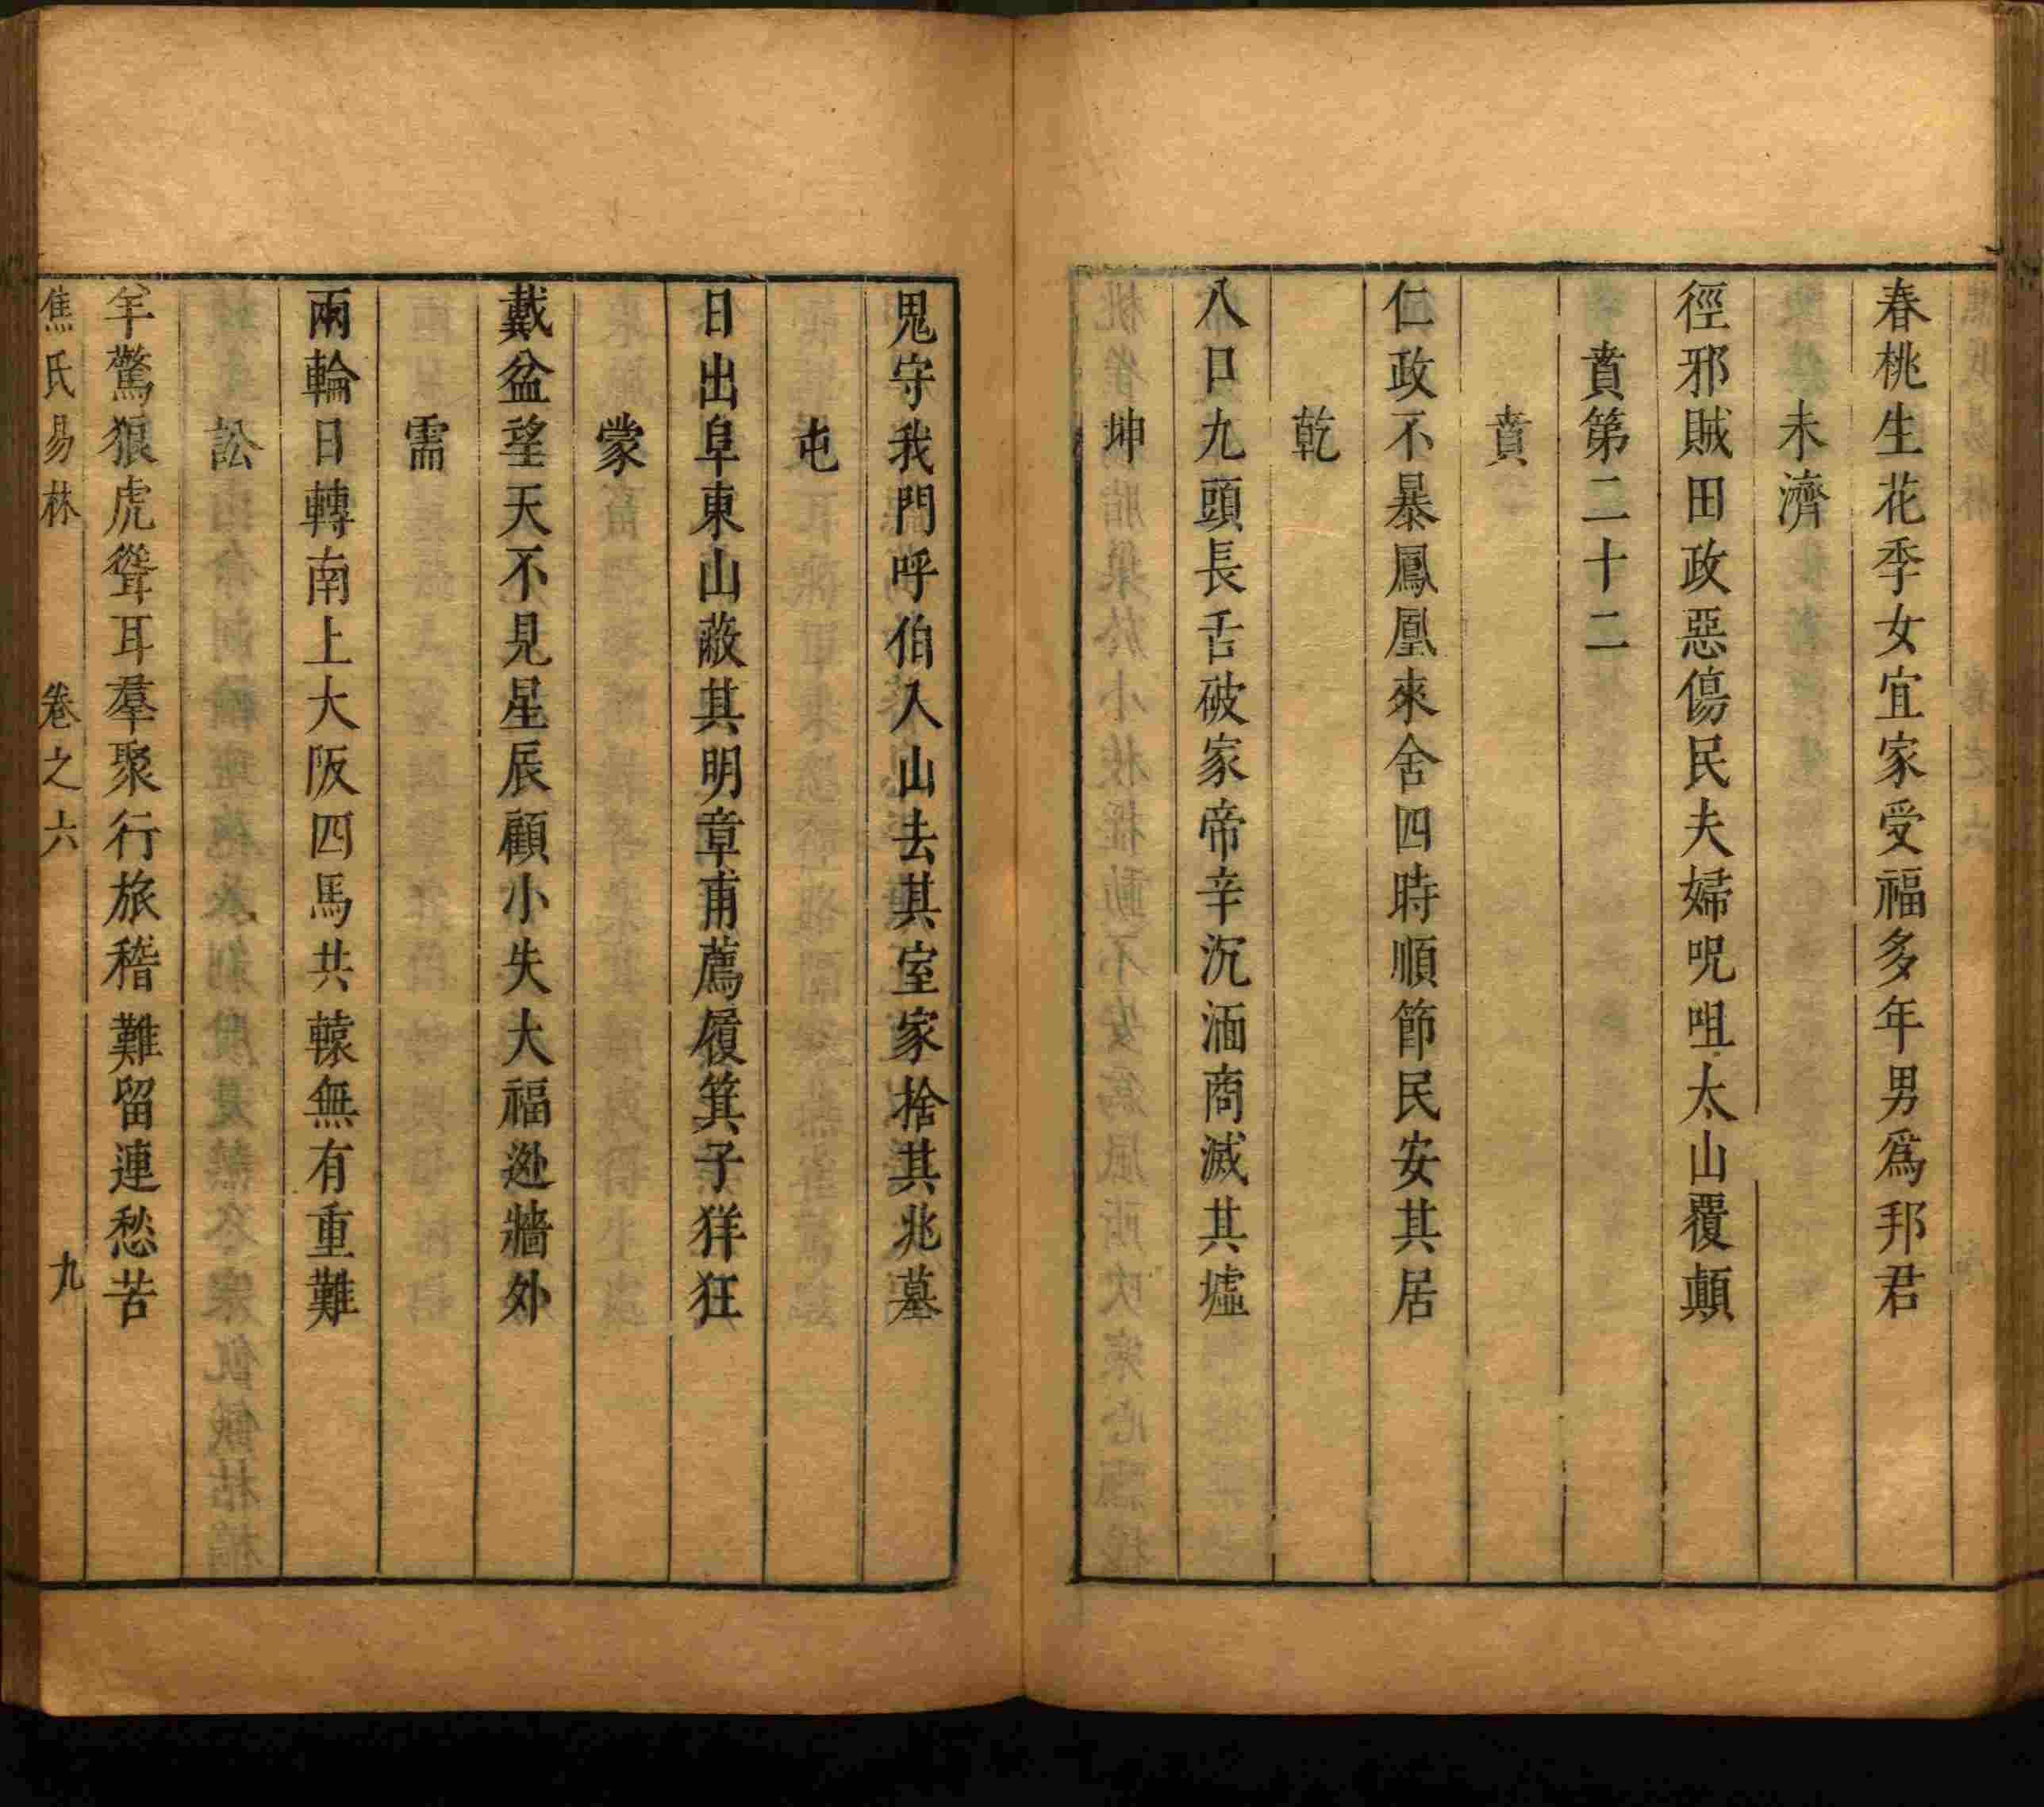 春桃生花季女宜家受福多年男爲邦君
未濟
徑邪賊田政惡傷民夫婦呪咀太山覆顛
賁第二十二
賁
仁政不暴鳳凰來舍四時順節民安其居
乾
八口九頭長舌破家帝辛沉湎商滅其墟
坤
鬼守我門呼伯入山去其室家捨其兆墓
屯
日出阜東山蔽其明章甫薦履箕子佯狂
蒙
戴盆望天不見星辰顧小失大福逃牆外
需
兩輪日轉南上大阪四馬共轅無有重難
訟
羊驚狼虎聳耳羣聚行旅稽難留連愁苦
焦氏易林 卷之六 九